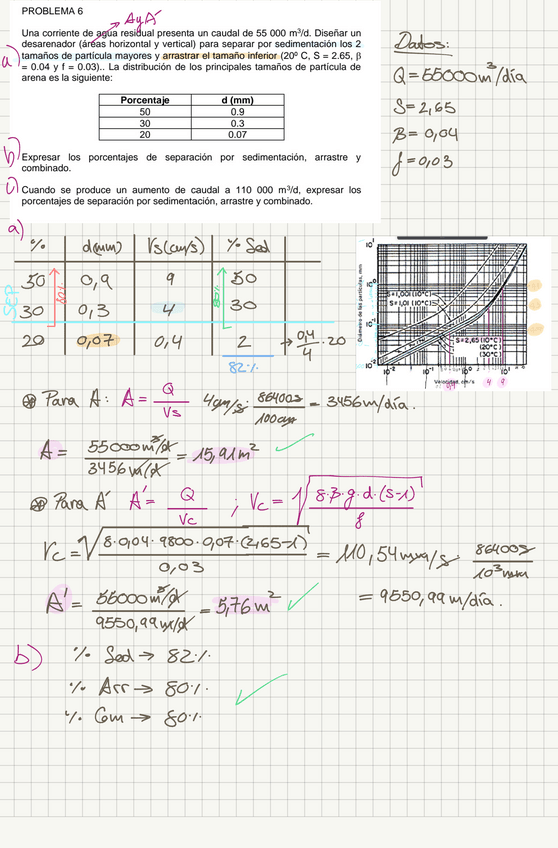 PROBLEMA 6
A y A'
Una corriente de agua residual presenta un caudal de 55 000 m³/d. Diseñar un
desarenador (áreas horizontal y vertical) para separar por sedimentación los 2
a) tamaños de partícula mayores y arrastrar el tamaño inferior (20º C, S = 2.65, β
= 0.04 y f = 0.03).. La distribución de los principales tamaños de partícula de
arena es la siguiente:
Porcentaje d (mm)
50 0.9
30 0.3
20 0.07
b) Expresar los porcentajes de separación por sedimentación, arrastre y
combinado.
c) Cuando se produce un aumento de caudal a 110 000 m³/d, expresar los
porcentajes de separación por sedimentación, arrastre y combinado.
Datos:
Q = 55000 m³/día
S = 2,65
B = 0,04
f = 0,03
a)
% d(mm) Vs(cm/s) % Sed
50 0,9 9 50
30 0,3 4 30
20 0,07 0,4 2 → 0,4/4 · 20
SEP
80%
80%
82%
Diámetro de las partículas, mm
10¹
10⁰
10⁻¹
10⁻²
S=1,001 (10°C)
S=1,01 (10°C)
S=2,65 (10°C)
(20°C)
(30°C)
10⁻² 10⁻¹ 10⁰ 10¹
Velocidad, cm/s
0,4 4 9
⊛ Para A: A = Q/Vs 4cm/s · 86400s/100cm = 3456 m/día.
A = 55000 m³/d / 3456 m/d = 15,91 m²
⊛ Para A' A' = Q/Vc ; Vc = √(8·B·g·d·(S-1)/f)
Vc = √(8·0,04·9800·0,07·(2,65-1)/0,03) = 110,54 mm/s · 86400s/10³mm
= 9550,99 m/día.
A' = 55000 m³/d / 9550,99 m/d = 5,76 m²
b) % Sed → 82%
% Arr → 80%
% Com → 80%